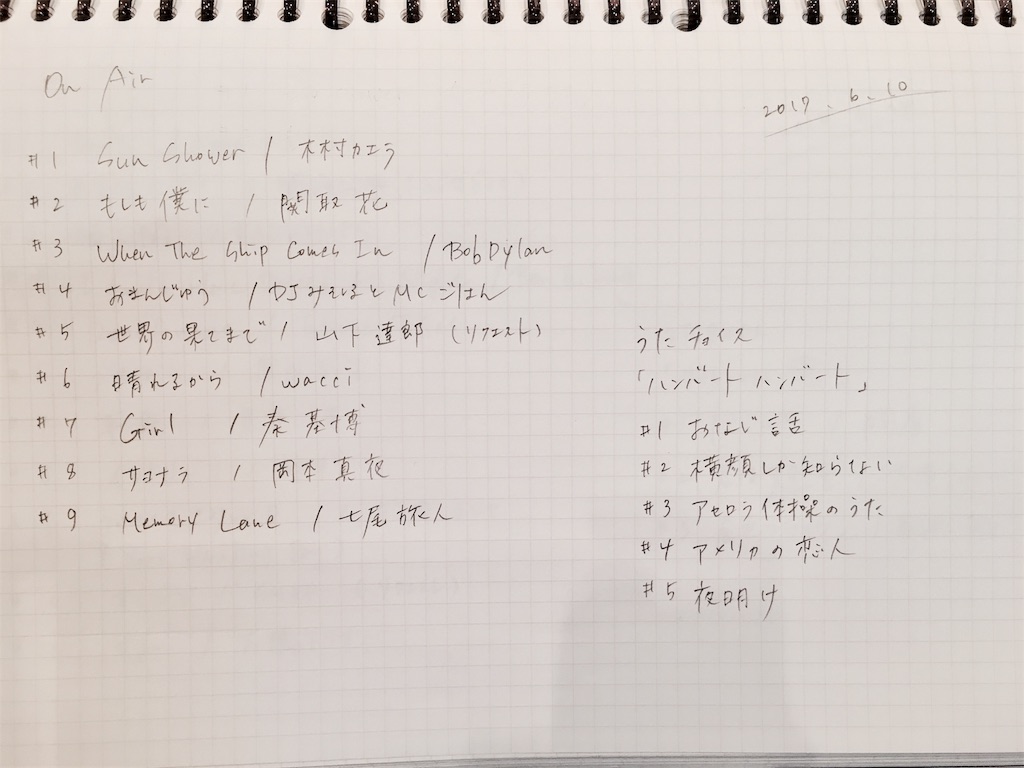 On Air
2017.6.10
#1 Sun Shower / 木村カエラ
#2 もしも僕に / 関取花
#3 When The Ship Comes In / Bob Dylan
#4 おまんじゅう / DJみそしるとMCごはん
#5 世界の果てまで / 山下達郎 (リクエスト)
#6 晴れるから / wacci
#7 Girl / 秦基博
#8 サヨナラ / 岡本真夜
#9 Memory Lane / 七尾旅人
うたチョイス
「ハンバートハンバート」
#1 おなじ話
#2 横顔しか知らない
#3 アセロラ体操のうた
#4 アメリカの恋人
#5 夜明け